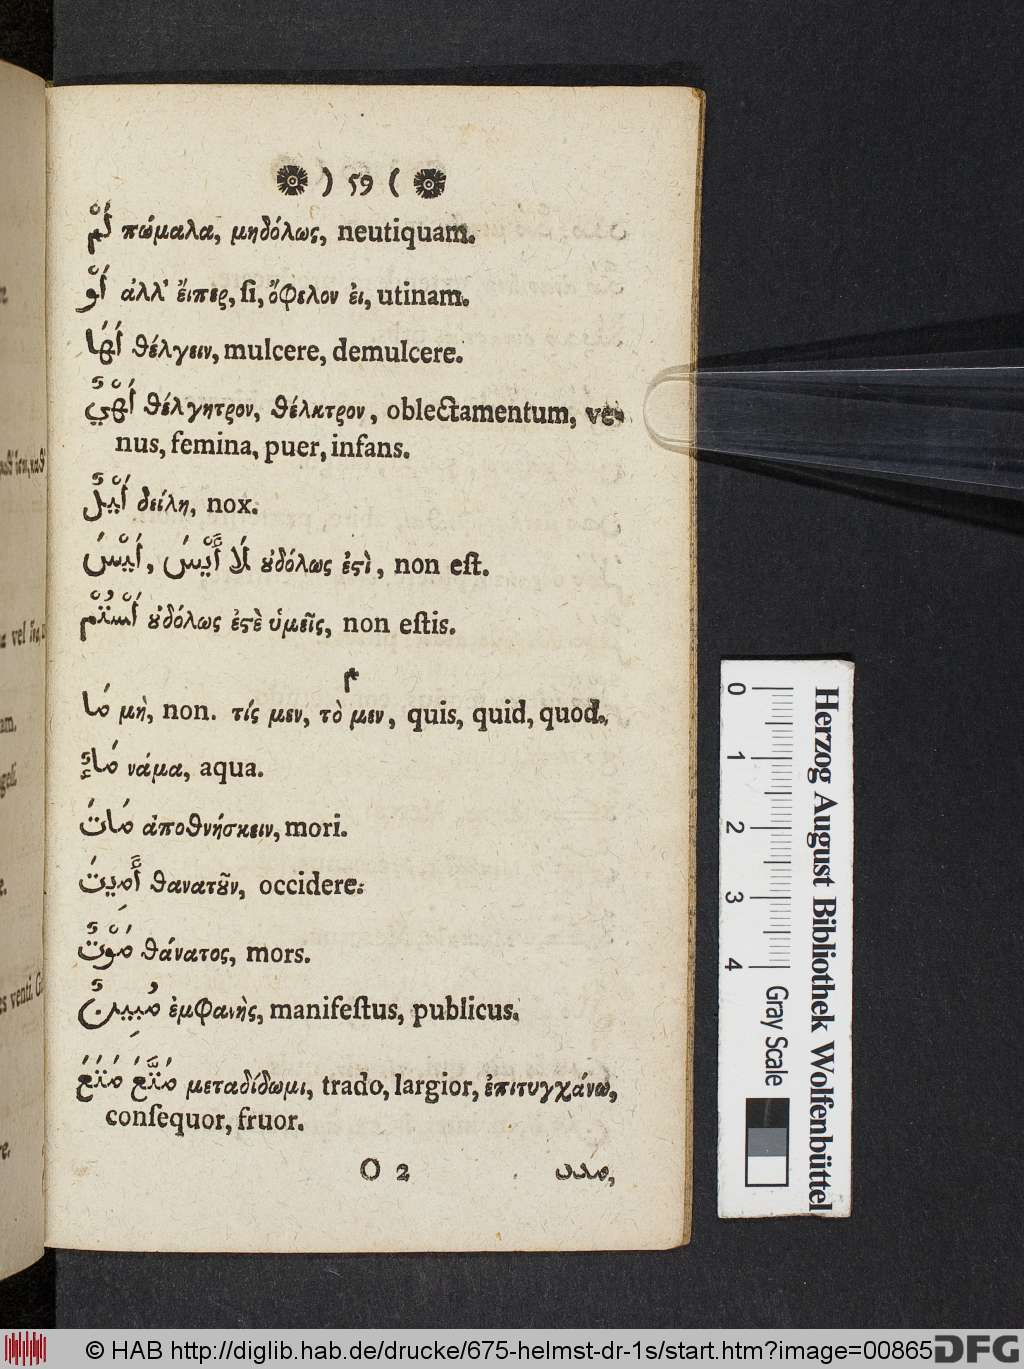 ) 59 (
لَمْ πώμαλα, μηδόλως, neutiquam.
لَوْ ἀλλ' ἔιπερ, ſi, ὄφελον ἐι, utinam.
لَهَا θέλγειν, mulcere, demulcere.
لَهْيٌ θέλγητρον, θέλκτρον, oblectamentum, ve-
nus, femina, puer, infans.
لَيْلٌ δείλη, nox.
لَيْسَ, لَا أَيْسَ ȣ̓δόλως ἐϛὶ, non eſt.
لَسْتُمْ ȣ̓δόλως ἐϛὲ ὑμεῖς, non eſtis.
م
مَا μὴ, non. τίς μεν, τὸ μεν, quis, quid, quod.
مَاءٌ νάμα, aqua.
مَاتَ ἀποθνήσκειν, mori.
أَمِيتَ θανατȣ͂ν, occidere.
مَوْتٌ θάνατος, mors.
مُبِينٌ ἐμφανὴς, manifeſtus, publicus.
مَتَعَ مَتَّعَ μεταδίδωμι, trado, largior, ἐπιτυγχάνω,
conſequor, fruor.
O 2
Herzog August Bibliothek Wolfenbüttel
0 1 2 3 4
Gray Scale
© HAB http://diglib.hab.de/drucke/675-helmst-dr-1s/start.htm?image=00865
DFG